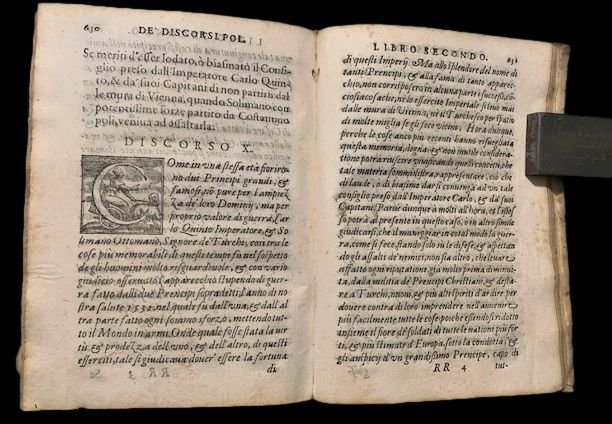 630
DE DISCORSI POL.
Se meriti d'esser lodato, ò biasimato il Consi-
glio preso dall'Imperatore Carlo Quin
to, & da' suoi Capitani di non partirsi dal
le mura di Vienna, quando Solimano con
potentissime forze partito da Costantino
poli, veniua ad assaltarla.
DISCORSO X.
Come in vna stessa età fioriro
no due Principi grandi, &
famosi, nò pure per l'ampiez
za de' loro Dominij, ma per
proprio valore di guerra, Car
lo Quinto Imperatore, & So
limano Ottomano, Signore de Turchi; con tra le
cose più memorabili di questi tempi fù nel cospetto
de gli huomini molto risguardeuole, & con vario
giudicio osseruato l'apparecchio stupendo di guer-
ra fatto dalli due Prencipi sopradetti; l'anno di no
stra salute 1532. nel quale fù dall'vna, & dall'al
tra parte fatto ogni sommo sforzo, mettendo tut-
to il Mondo in armi. Onde quale fosse stata la vir
tù, & prodezza dell'vno, & dell'altro, di questi
esserciti, tale si giudicaua douer' essere la fortuna
RR 3
di
LIBRO SECONDO.
631
di questi Imperij. Ma allo splendore del nome di
tanti Prencipi, & alla fama di tanto apparec-
chio, non corrispose in alcuna parte i successi; cò-
ciosiacosache, nè lo essercito Imperiale si tirò mai
dalle mura di Vienna, nè il Turchesco per spatio
di molte miglia se gli fece vicino. Hora dunque,
perche le cose anco più recenti hanno risuegliata
questa memoria, degna, & non inutile considera-
tione potrà riuscire
tale materia somministra, rappresentare, ciò che
di laude, ò di biasimo darsi conuenga ad vn tale
consiglio preso dall'Imperatore Carlo, & da' suoi
Capitani. Parue dunque à molti all'hora, & l'istes
so potrà al presente in questo caso, ò in altro simile
giudicarsi, che il maneggiar in cotal modo la guer
ra, come si fece, stando solo sù le difese, & aspettan
do gli assalti de' nemici, non sia altro, che leuare
affatto ogni riputatione, già molto prima diminui-
ta, dalla militia de' Prencipi Christiani, & desta-
re a Turchi, nuoui, & più alti spiriti d'ardire per
douere contra di loro imprendere nell'auenire
più facilmente tutte le cose. poiche essendosi ridotto
insieme il fiore de' soldati di tutte le nationi più for
ti, & più stimate d'Europa, sotto la condotta, &
gli auspicij d'vn grandissimo Prencipe, capo di
RR 4
tut-